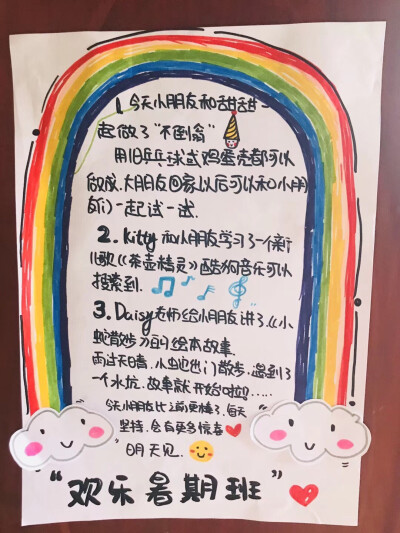 1.今天小朋友和甜甜一
起做了"不倒翁"
用旧乒乓球或鸡蛋壳都可以
做成.大朋友回家以后可以和小朋
友们一起试一试.
2.Kitty和小朋友学习了一个新
儿歌《茶壶精灵》酷狗音乐可以
搜索到.
3.Daisy老师给小朋友讲了《小
蛇散步》的绘本故事.
雨过天晴,小蛇也出门散步,遇到了
一个水坑.故事就开始啦!.....
今天小朋友比之前更棒了,每天
坚持,会有更多惊喜
明天见.
"欢乐暑期班"